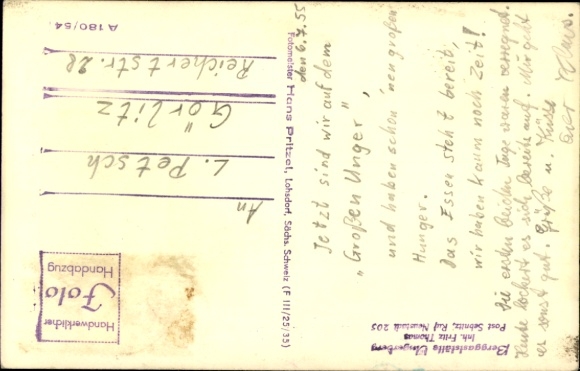 Berggaststätte Ungerberg
Inh. Fritz Thomas
Post Sebnitz, Ruf Neustadt 205
den 6.7.55
Jetzt sind wir auf dem
„Großen Unger",
und haben schon nen großen
Hunger.
Das Essen steht bereit,
wir haben kaum noch Zeit!
Die ersten beiden Tage waren verregnet.
Heute lockert es sich bereits auf. Mir geht
es sonst gut. Grüße u. Küsse
Euer Klaus.
Fotomeister Hans Pritzel, Lohsdorf, Sächs. Schweiz (F III/25/35)
Handwerklicher
Foto
Handabzug
An
L. Petsch
Görlitz
Reichertstr. 28
A 180/54.